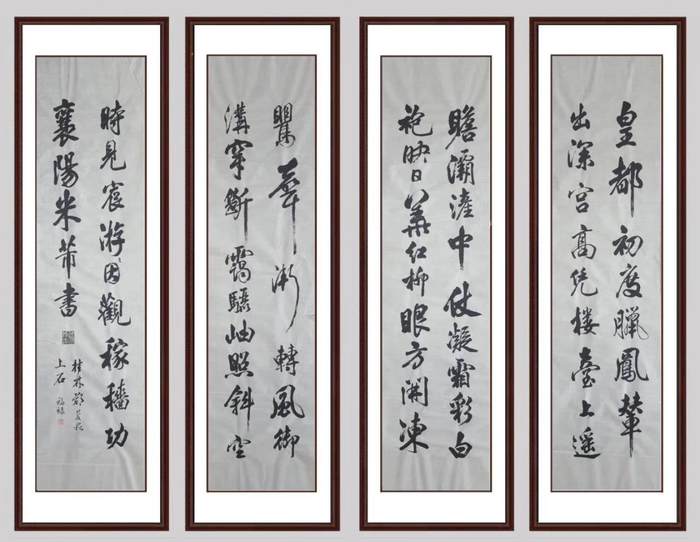 皇都初度臘鳳輦
出深宮高凭樓臺上遙
瞻灞滻中仗凝霜彩白
袍映日華紅柳眼方開凍
鸎聲漸轉風御
溝穿斷靄驪岫照斜空
時見宸游因觀稼穡功
襄陽米芾書
桂林
上石